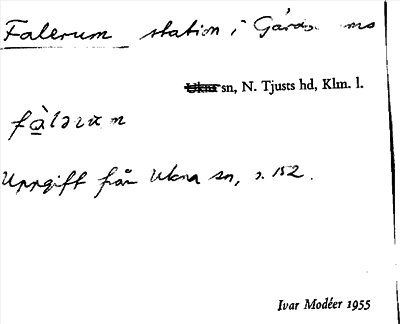 Falerum station i Gärds. mo
Ukna sn, N. Tjusts hd, Klm. l.
Uppgift från Ukna sn, s. 152.
Ivar Modéer 1955